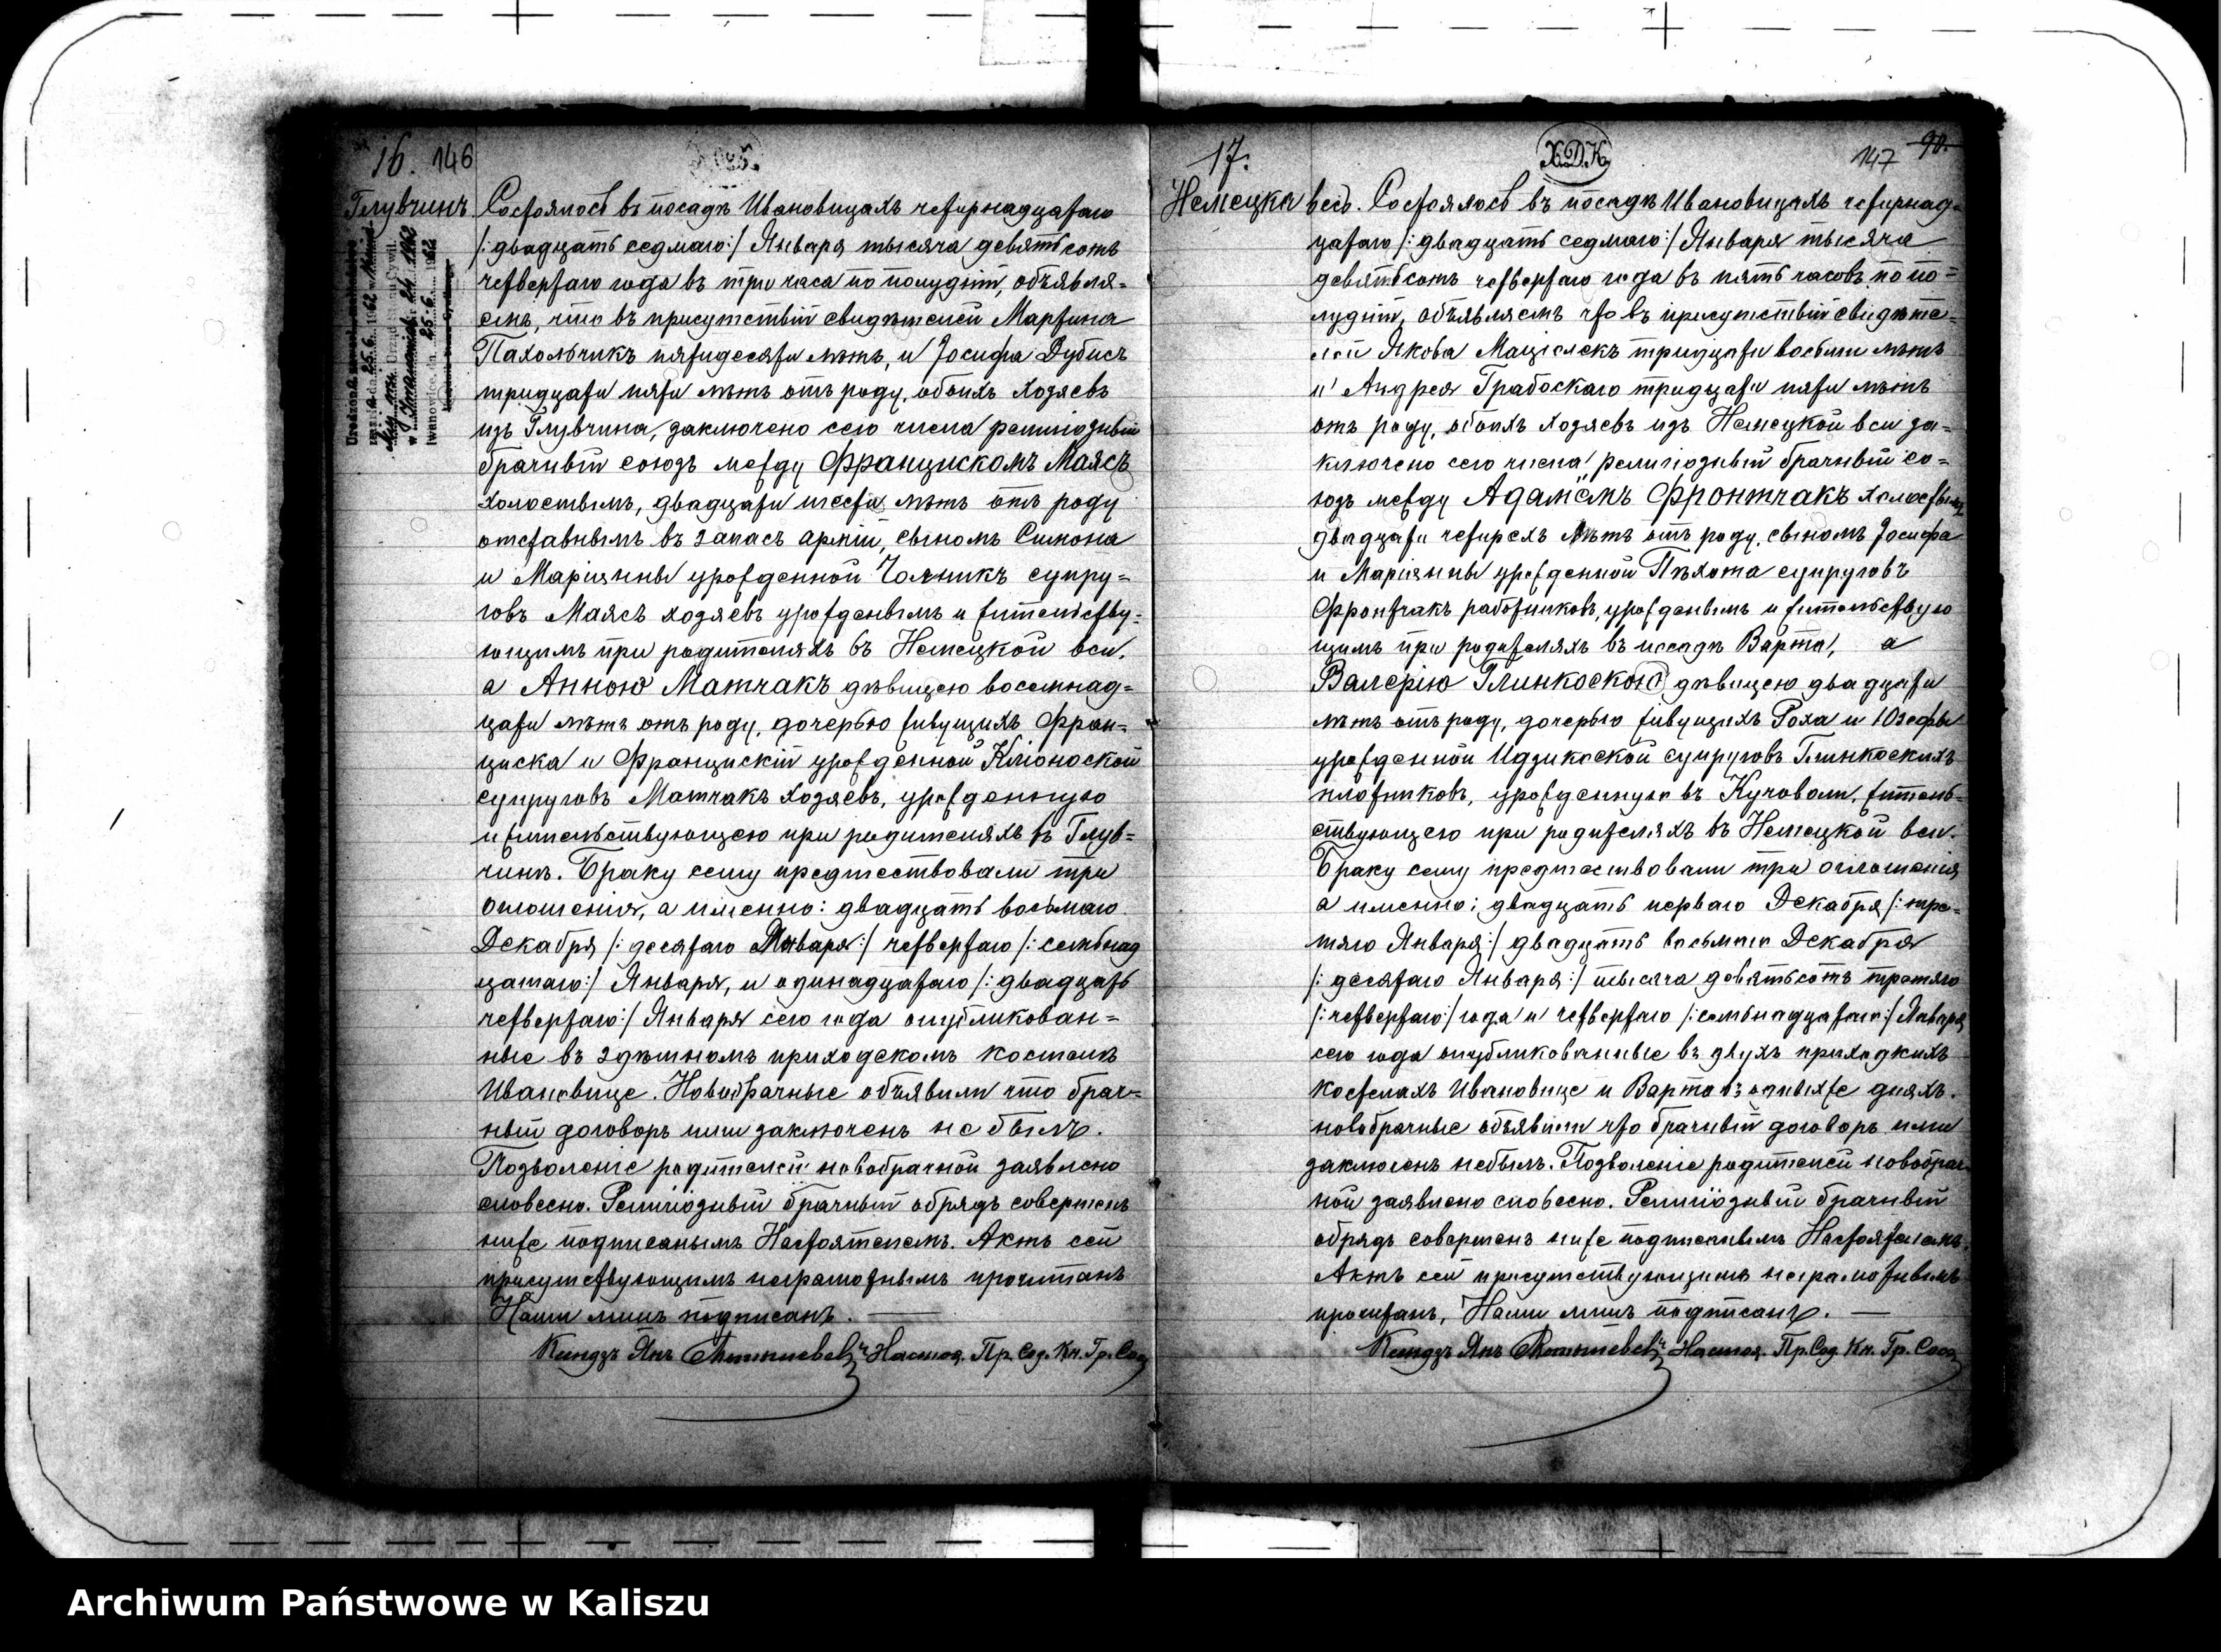 16. 146
Глувчинъ
Состоялось въ посадѣ Ивановицахъ четырнадцатаго
/: двадцать седмаго :/ Января тысяча девятьсотъ
четвертаго года въ три часа по полудни, объявля=
емъ, что въ присутствіи свидѣтелей Мартина
Пахольчикъ пятидесяти лѣтъ, и Іосифа Дубисъ
тридцати пяти лѣтъ отъ роду, обоихъ хозяевъ
изъ Глувчина, заключено сего числа религіозный
брачный союзъ между Францискомъ Маясъ
холостымъ, двадцати шести лѣтъ отъ роду
отставнымъ въ запасъ арміи, сыномъ Симона
и Маріянны урожденной супру=
говъ Маясъ хозяевъ урожденымъ и жительству=
ющимъ при родителяхъ въ Немецкой вси,
а Анною Матчакъ дѣвицею восемнад=
цати лѣтъ отъ роду, дочерью живущихъ Фран=
циска и Франциски урожденной Кліоноской
супруговъ Матчакъ хозяевъ, урожденную
и жительствующею при родителяхъ въ Глув=
чинѣ. Браку сему предшествовали три
оглошенія, а именно: двадцать восьмаго
Декабря /: десятаго Января :/ четвертаго /: семьнад
цатаго :/ Января, и одинадцатаго /: двадцать
четвертаго :/ Января сего года опубликован=
ные въ здѣшномъ приходскомъ костелѣ
Ивановице. Новобрачные объявили что брач=
ный договоръ ими заключенъ не былъ.
Позволеніе родителей новобрачной заявлено
словесно. Религіозный брачный обрядъ совершенъ
ниже подписанымъ Настоятелемъ. Актъ сей
присутствующимъ неграмотнымъ прочитанъ
Нами лишь подписанъ.
Ксендзъ Янъ Настоя. Пр. Сод. Кн. Гр. Сос
17.
Х.Д.К.
147 90.
Немецка весь. Состоялось въ посадѣ Ивановицахъ четырнад=
цатаго /: двадцать седмаго :/ Января тысяча
девятьсотъ четвертаго года въ пять часовъ по по=
лудни, объявляемъ что въ присутствіи свидѣте=
лей Якова Маціолекъ тридцати восьми лѣтъ
и Андрея Грабоскаго тридцати пяти лѣтъ
отъ роду, обоихъ хозяевъ изъ Немецкой вси за=
ключено сего числа религіозный брачный со=
юзъ между Адамомъ Фронтчакъ холостымъ
двадцати четырехъ лѣтъ отъ роду, сыномъ Іосифа
и Маріянны урожденной Пѣхота супруговъ
Фронтчакъ работниковъ, урожденымъ и жительствую
щимъ при родителяхъ въ посадѣ Варта, а
Валерію Глинкоскою дѣвицею двадцати
лѣтъ отъ роду, дочерью живущихъ Роха и Юзефы
урожденной Идзикоской супруговъ Глинкоскихъ
плотниковъ, урожденную въ жительс=
ствующею при родителяхъ въ Немецкой вси.
Браку сему предшествовали три оглошенія
а именно: двадцать перваго Декабря /: тре=
тяго Января :/ двадцать восьмаго Декабря
/: десятаго Января :/ тысяча девятьсотъ третяго
/: четвертаго :/ года и четвертаго /: семьнадцатаго :/ Января
сего года опубликованные въ двухъ приходкихъ
костелахъ Ивановице и Варта въ дняхъ.
новобрачные объявили что брачный договоръ ими
заключенъ небылъ. Позволеніе родителей новобрач=
ной заявлено словесно. Религіозный брачный
обрядъ совершенъ ниже подписанымъ Настоятелемъ.
Актъ сей присутствующимъ неграмотнымъ
прочитанъ, Нами лишь подписанъ.
Ксендзъ Янъ Настоя. Пр. Сод. Кн. Гр. Сос
Archiwum Państwowe w Kaliszu